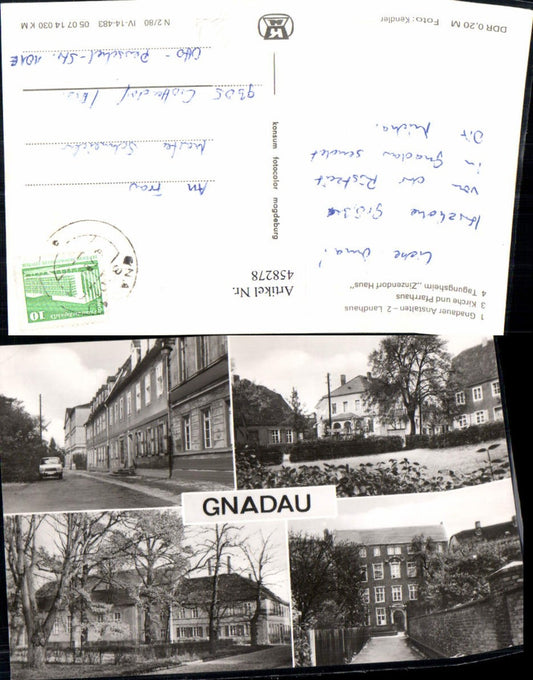 1 Gnadauer Anstalten – 2 Landhaus
3 Kirche und Pfarrhaus
4 Tagungsheim „Zinzendorf Haus"
Artikel Nr.
458278
Liebe Oma!
Herzliche Grüße
von der Rüstzeit
in Gnadau sendet
Dir Micha.
konsum fotocolor magdeburg
An Frau
Schneider
9305
Otto-
DDR 0,20 M Foto: Kendler
N 2/80 IV-14-483 05 07 14 030 K M
10
GNADAU